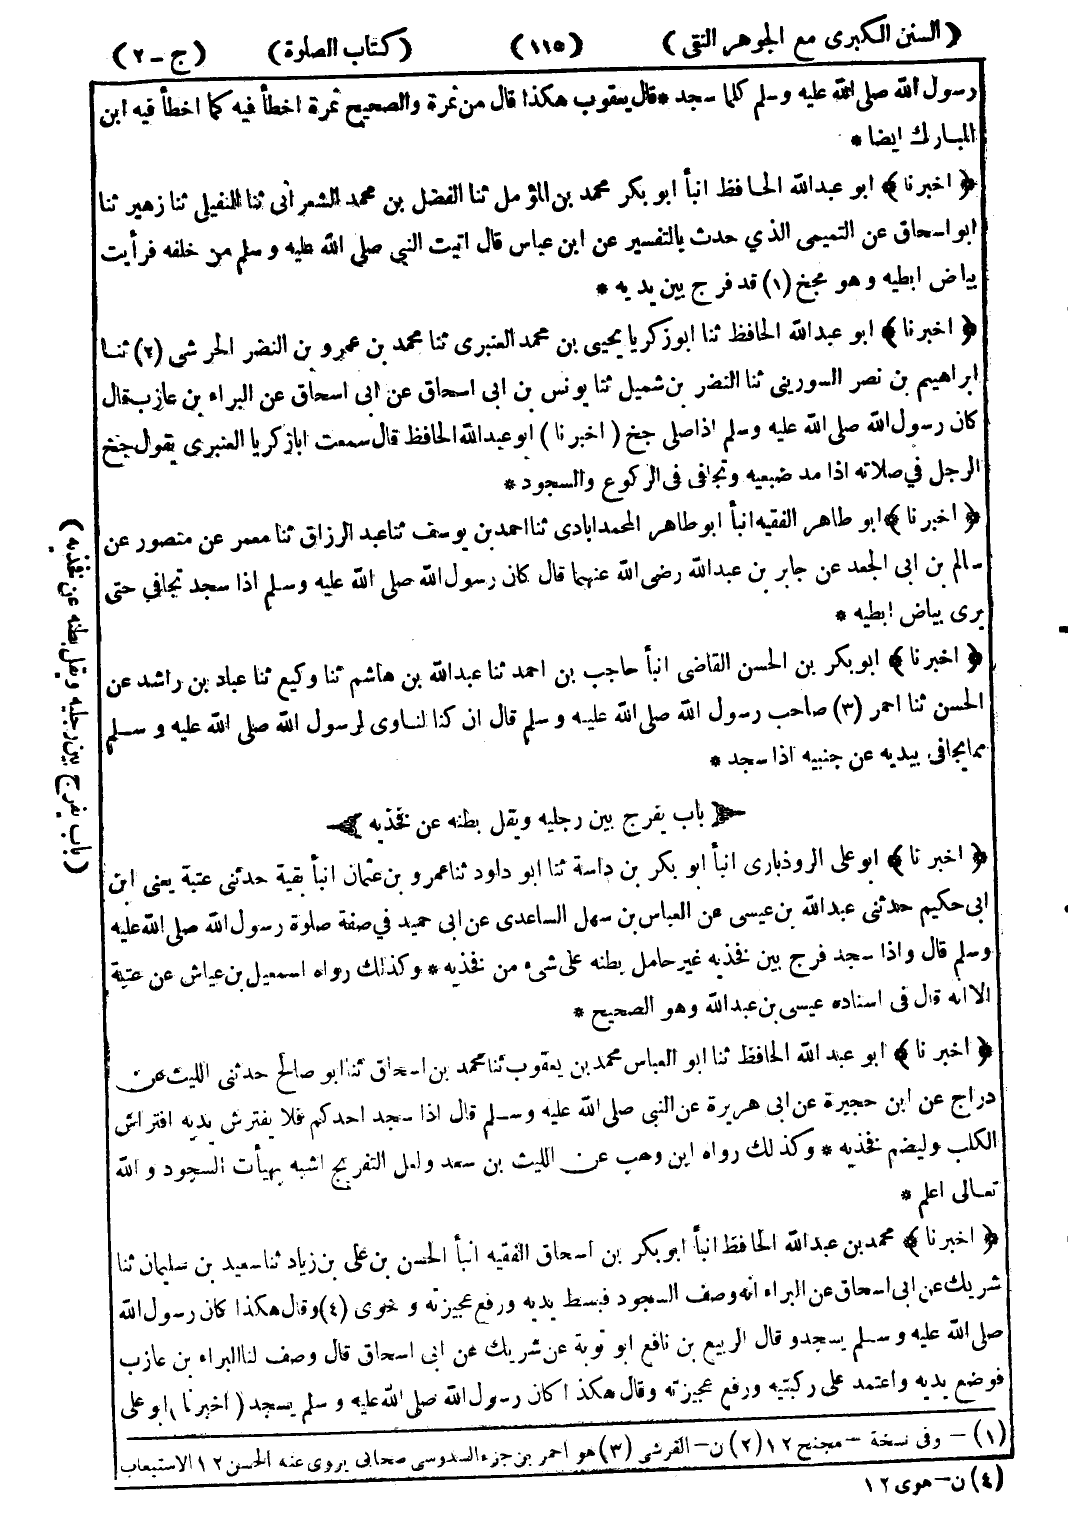 (السنن الكبرى مع الجوهر النقى) (١١٥) (كتاب الصلوة) (ج - ٢)
رسول الله صلى الله عليه وسلم كلما سجد * قال يعقوب هكذا قال من نمرة والصحيح نمرة اخطأ فيه كما اخطأ فيه ابن
المبارك ايضا *
﴿ اخبرنا ﴾ ابو عبدالله الحافظ انبأ ابو بكر محمد بن المؤمل ثنا الفضل بن محمد الشعرانى ثنا النفيلى ثنا زهير ثنا
ابو اسحاق عن التميمى الذي حدث بالتفسير عن ابن عباس قال اتيت النبي صلى الله عليه وسلم من خلفه فرأيت
بياض ابطيه وهو مجخ (١) قد فرج بين يديه *
﴿ اخبرنا ﴾ ابو عبدالله الحافظ ثنا ابو زكريا يحيى بن محمد العنبرى ثنا محمد بن عمرو بن النضر الحرشى (٢) ثنا
ابراهيم بن نصر السورينى ثنا النضر بن شميل ثنا يونس بن ابى اسحاق عن ابى اسحاق عن البراء بن عازب قال
كان رسول الله صلى الله عليه وسلم اذا صلى جخ ( اخبرنا ) ابو عبدالله الحافظ قال سمعت ابا زكريا العنبرى يقول جخ
الرجل في صلاته اذا مد ضبعيه وتجافى فى الركوع والسجود *
﴿ اخبرنا ﴾ ابو طاهر الفقيه انبأ ابو طاهر المحمدابادى ثنا احمد بن يوسف ثنا عبد الرزاق ثنا معمر عن منصور عن
سالم بن ابى الجعد عن جابر بن عبدالله رضى الله عنهما قال كان رسول الله صلى الله عليه وسلم اذا سجد تجافي حتى
يرى بياض ابطيه *
﴿ اخبرنا ﴾ ابو بكر بن الحسن القاضى انبأ حاجب بن احمد ثنا عبدالله بن هاشم ثنا وكيع ثنا عباد بن راشد عن
الحسن ثنا احمر (٣) صاحب رسول الله صلى الله عليه وسلم قال ان كنا لنأوى لرسول الله صلى الله عليه وسلم
مما يجافى بيديه عن جنبيه اذا سجد *
باب يفرج بين رجليه ويقل بطنه عن فخذيه
﴿ اخبرنا ﴾ ابو على الروذبارى انبأ ابو بكر بن داسة ثنا ابو داود ثنا عمرو بن عثمان انبأ بقية حدثنى عتبة يعنى ابن
ابى حكيم حدثنى عبدالله بن عيسى عن العباس بن سهل الساعدى عن ابى حميد في صفة صلوة رسول الله صلى الله عليه
وسلم قال واذا سجد فرج بين فخذيه غير حامل بطنه على شىء من فخذيه * وكذلك رواه اسمعيل بن عياش عن عتبة
الا انه قال فى اسناده عيسى بن عبدالله وهو الصحيح *
﴿ اخبرنا ﴾ ابو عبدالله الحافظ ثنا ابو العباس محمد بن يعقوب ثنا محمد بن اسحاق ثنا ابو صالح حدثنى الليث عن
دراج عن ابن حجيرة عن ابى هريرة عن النبى صلى الله عليه وسلم قال اذا سجد احدكم فلا يفترش يديه افتراش
الكلب وليضم فخذيه * وكذلك رواه ابن وهب عن الليث بن سعد ولعل التفريج اشبه بهيأت السجود والله
تعالى اعلم *
﴿ اخبرنا ﴾ محمد بن عبدالله الحافظ انبأ ابو بكر بن اسحاق الفقيه انبأ الحسن بن على بن زياد ثنا سعيد بن سليمان ثنا
شريك عن ابى اسحاق عن البراء انه وصف السجود فبسط يديه ورفع عجيزته وخوى (٤) وقال هكذا كان رسول الله
صلى الله عليه وسلم يسجد وقال الربيع بن نافع ابو توبة عن شريك عن ابى اسحاق قال وصف لنا البراء بن عازب
فوضع يديه واعتمد على ركبتيه ورفع عجيزته وقال هكذا كان رسول الله صلى الله عليه وسلم يسجد ( اخبرنا ) ابو على
(١) - وفى نسخة - مجنح ١٢ (٢) ن - القرشى (٣) هو احمر بن جزء السدوسى صحابى يروى عنه الحسن ١٢ الاستيعاب
(٤) ن - هوى ١٢
(باب يفرج بين رجليه ويقل بطنه عن فخذيه)